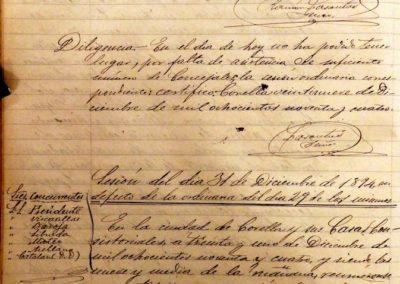 Diligencia.- En el dia de hoy no ha podido tener
lugar, por falta de asistencia de suficiente
número de Concejales, la sesion ordinaria corres-
pondiente; certifico, Corella veintinueve de Di-
ciembre de mil ochocientos noventa y cuatro.
Sesión del dia 31 de Diciembre de 1894 en
defecto de la ordinaria del dia 29 de los mismos
Sres concurrentes
Presidente
En la ciudad de Corella y sus Casas Con-
sistoriales, a treinta y uno de Diciembre de
mil ochocientos noventa y cuatro, y siendo las
nueve y media de la mañana, reunieronse